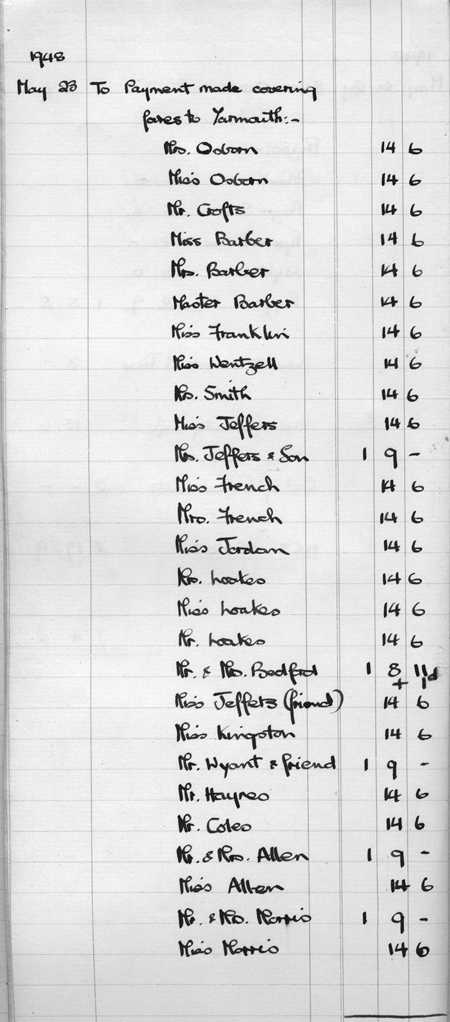 1948
May 23 To Payment made covering
fares to Yarmouth:-
Mrs. Osborn 14 6
Miss Osborn 14 6
Mr. Crofts 14 6
Miss Barber 14 6
Mrs. Barber 14 6
Master Barber 14 6
Miss Franklin 14 6
Miss Wentzell 14 6
Mrs. Smith 14 6
Miss Jeffers 14 6
Mrs. Jeffers & Son 1 9 -
Miss French 14 6
Mrs. French 14 6
Miss Jordan 14 6
Mrs. Loakes 14 6
Miss Loakes 14 6
Mr. Loakes 14 6
Mr. & Mrs. Bedford 1 8 11
+ 1d
Miss Jeffers (friend) 14 6
Miss Kingston 14 6
Mr. Wyant & friend 1 9 -
Mr. Haynes 14 6
Mr. Coles 14 6
Mr. & Mrs. Allen 1 9 -
Miss Allen 14 6
Mr. & Mrs. Morris 1 9 -
Miss Morris 14 6